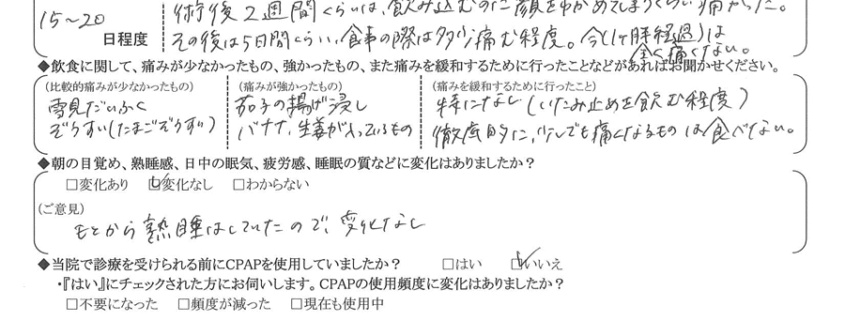 術後2週間くらいは、飲み込むのに顔をゆがめてしまうくらい痛かった。
15～20
日程度
その後は5日間くらい、食事の際は多少痛む程度。今(1ヶ月経過)は
全く痛くない。
◆飲食に関して、痛みが少なかったもの、強かったもの、また痛みを緩和するために行ったことなどがあればお聞かせください。
(比較的痛みが少なかったもの) (痛みが強かったもの) (痛みを緩和するために行ったこと)
雪見だいふく 茄子の揚げ浸し 特になし(いたみ止めを飲む程度)
ぞうすい(たまごぞうすい) バナナ、生姜が入っているもの 徹底的に、少しでも痛くなるものは食べない。
◆朝の目覚め、熟睡感、日中の眠気、疲労感、睡眠の質などに変化はありましたか？
□変化あり ☑変化なし □わからない
(ご意見)
もとから熟睡はしていたので、変化なし
◆当院で診療を受けられる前にCPAPを使用していましたか？ □はい ☑いいえ
・『はい』にチェックされた方にお伺いします。CPAPの使用頻度に変化はありましたか？
□不要になった □頻度が減った □現在も使用中